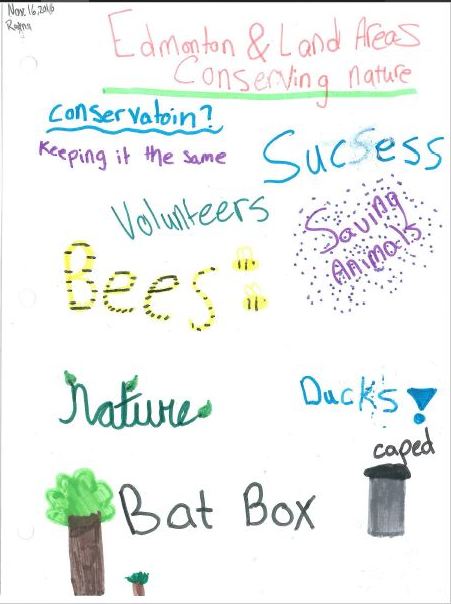 Nov. 16, 2016
Edmonton & Land Areas
Conserving nature
Conservatoin?
Keeping it the same
Sucsess
Volunteers
Saving
Animals
Bees
Nature
Ducks!
caped
Bat Box